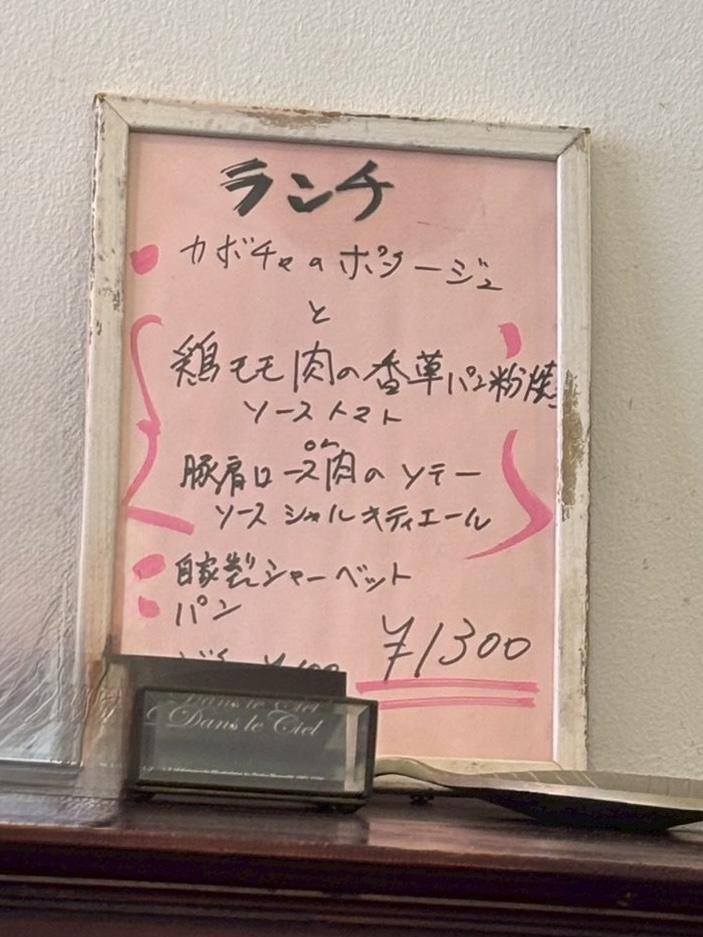 ランチ
カボチャのポタージュ
と
鶏モモ肉の香草パン粉焼
ソーストマト
豚肩ロース肉のソテー
ソースシャルキティエール
自家製シャーベット
パン
¥1300
Dans le Ciel